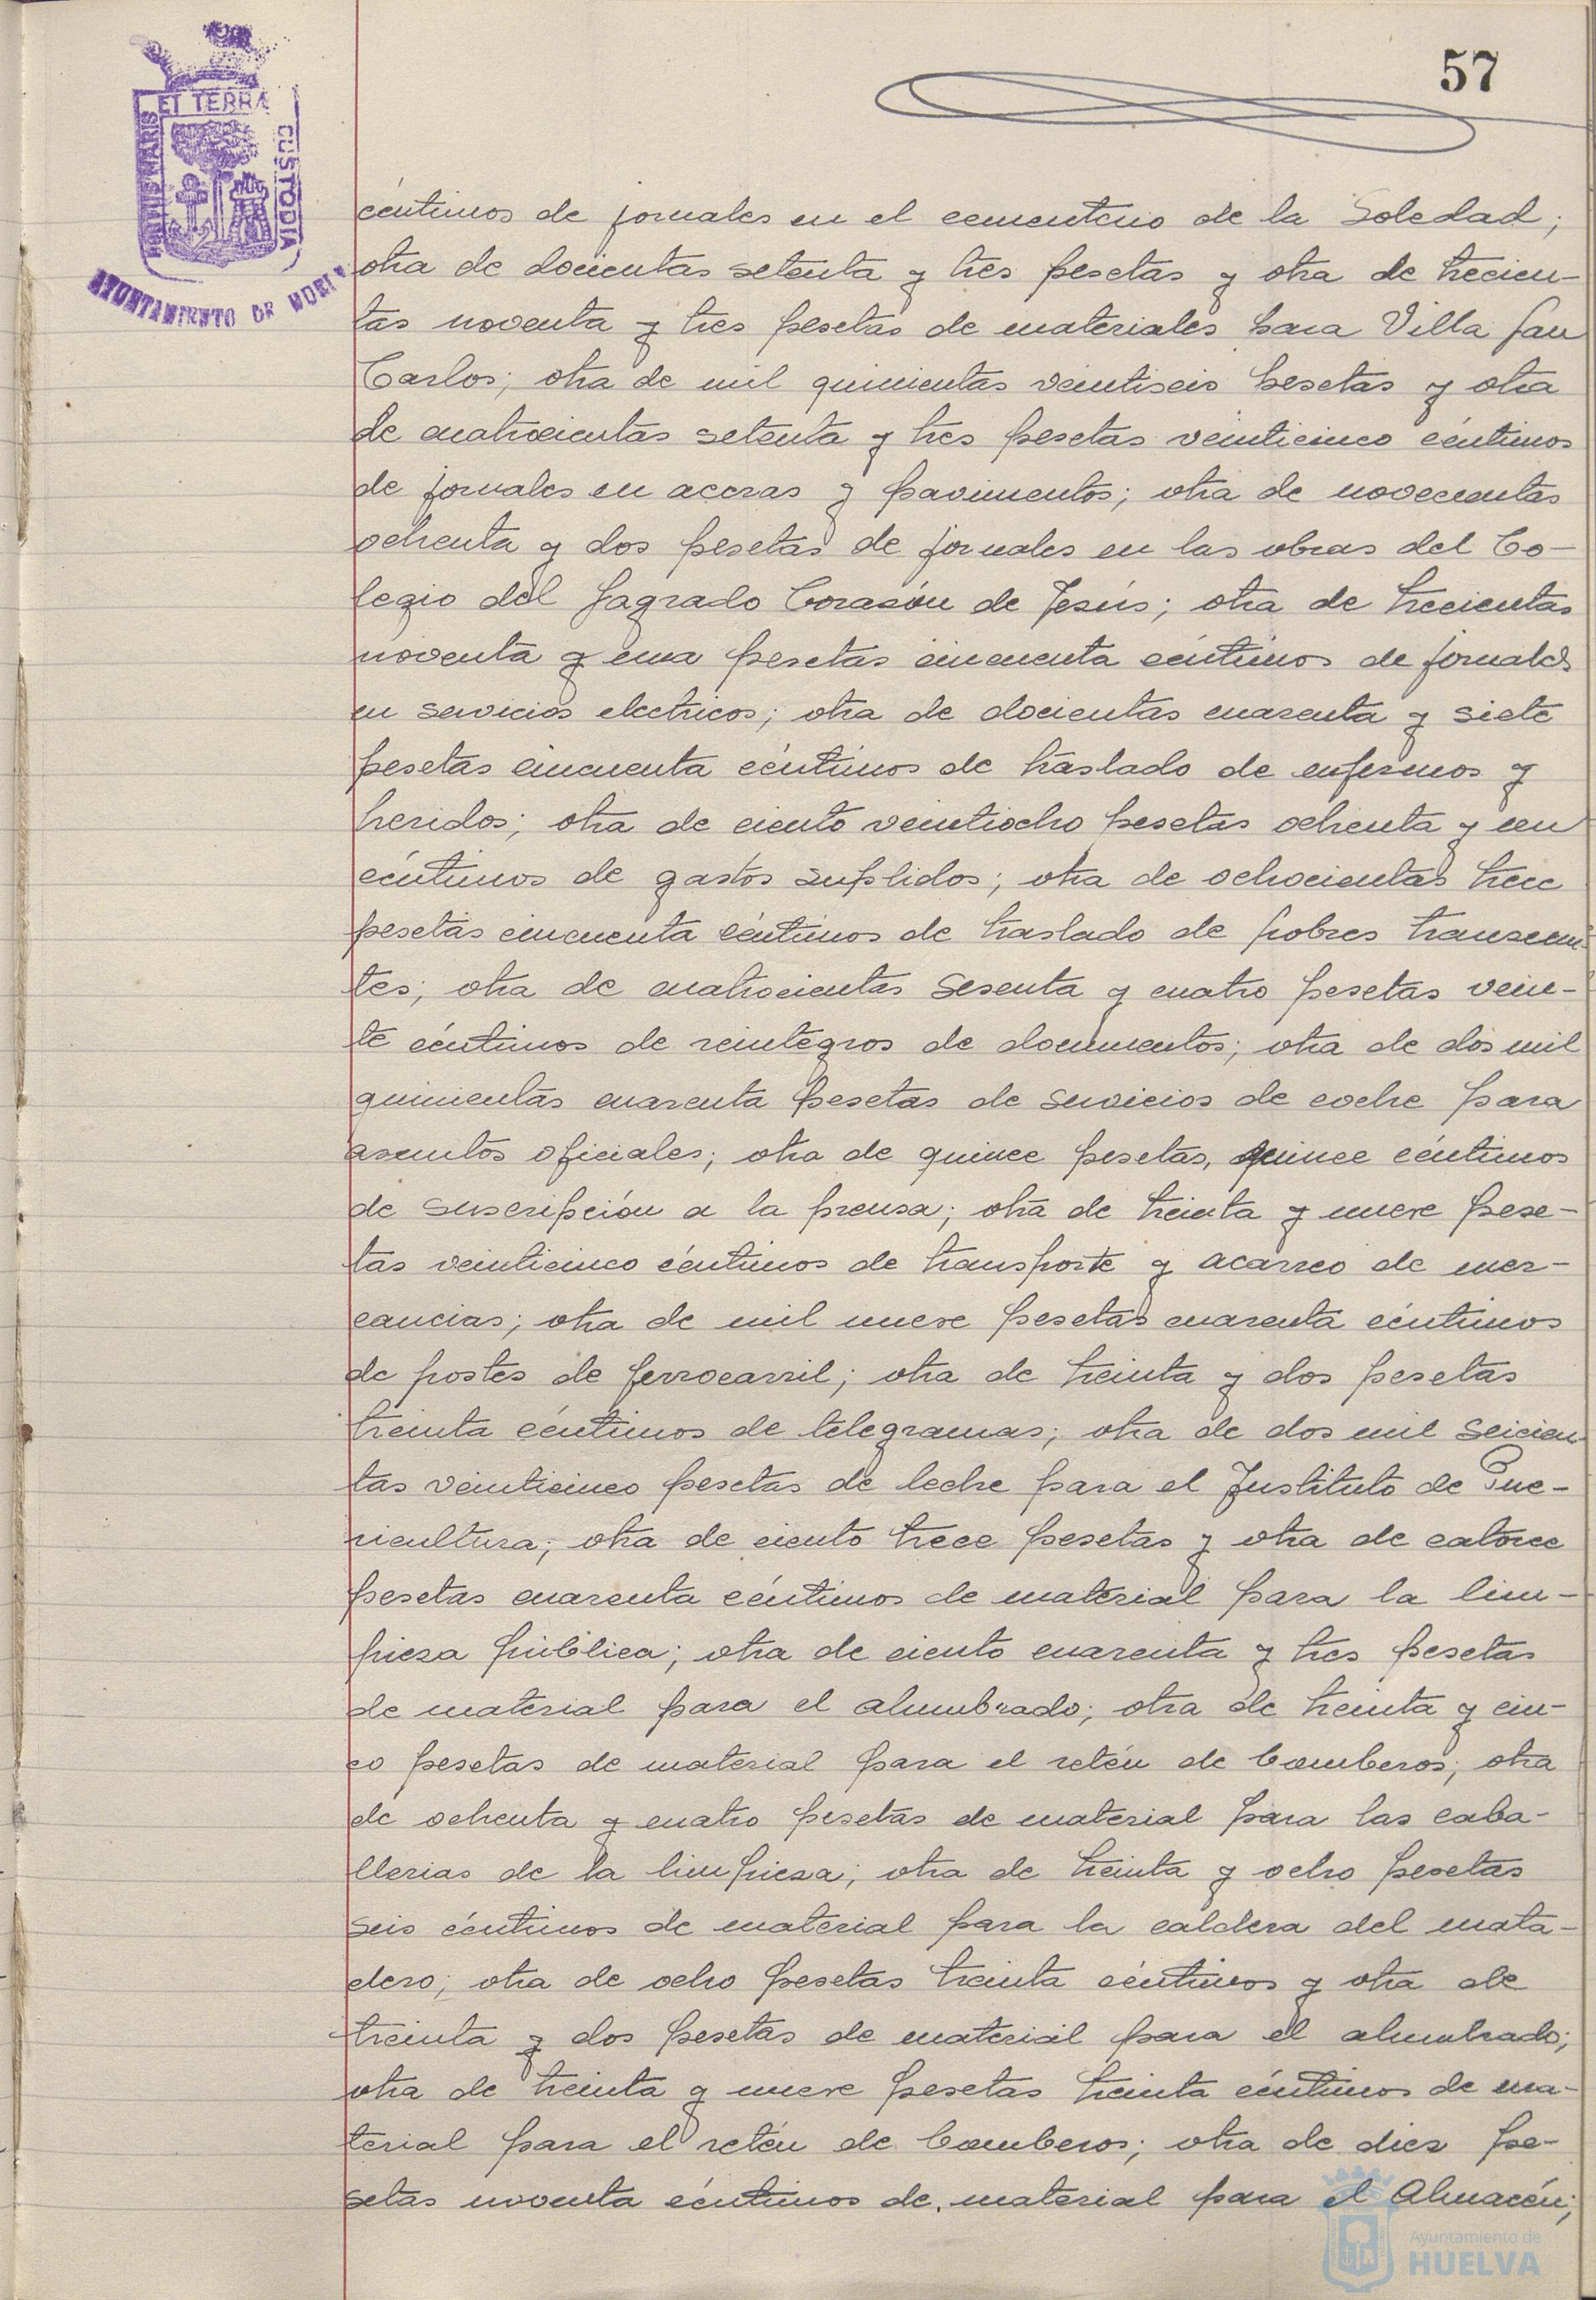 57
ET TERRA
PORTUS MARIS
CUSTODIA
AYUNTAMIENTO DE
céntimos de jornales en el cementerio de la Soledad;
otra de docientas setenta y tres pesetas y otra de trecien-
tas noventa y tres pesetas de materiales para Villa San
Carlos; otra de mil quinientas veintiseis pesetas y otra
de cuatrocientas setenta y tres pesetas veinticinco céntimos
de jornales en aceras y pavimentos; otra de novecientas
ochenta y dos pesetas de jornales en las obras del Co-
legio del Sagrado Corazón de Jesús; otra de trecientas
noventa y una pesetas cincuenta céntimos de jornales
en servicios electricos; otra de docientas cuarenta y siete
pesetas cincuenta céntimos de traslado de enfermos y
heridos; otra de ciento veintiocho pesetas ochenta y un
céntimos de gastos suplidos; otra de ochocientas trece
pesetas cincuenta céntimos de traslado de pobres transeun-
tes; otra de cuatrocientas sesenta y cuatro pesetas vein-
te céntimos de reintegros de documentos; otra de dos mil
quinientas cuarenta pesetas de servicios de coche para
asuntos oficiales; otra de quince pesetas, quince céntimos
de suscripción a la prensa; otra de treinta y nueve pese-
tas veinticinco céntimos de transporte y acarreo de mer-
cancias; otra de mil nueve pesetas cuarenta céntimos
de postes de ferrocarril; otra de treinta y dos pesetas
treinta céntimos de telegramas; otra de dos mil seicien-
tas veinticinco pesetas de leche para el Instituto de Pue-
ricultura; otra de ciento trece pesetas y otra de catorce
pesetas cuarenta céntimos de material para la lim-
pieza pública; otra de ciento cuarenta y tres pesetas
de material para el alumbrado; otra de treinta y cin-
co pesetas de material para el retén de bomberos; otra
de ochenta y cuatro pesetas de material para las caba-
llerias de la limpieza; otra de treinta y ocho pesetas
seis céntimos de material para la caldera del mata-
dero; otra de ocho pesetas treinta céntimos y otra de
treinta y dos pesetas de material para el alumbrado;
otra de treinta y nueve pesetas treinta céntimos de ma-
terial para el retén de bomberos; otra de diez pe-
setas noventa céntimos de material para el Almacén;
Ayuntamiento de
HUELVA